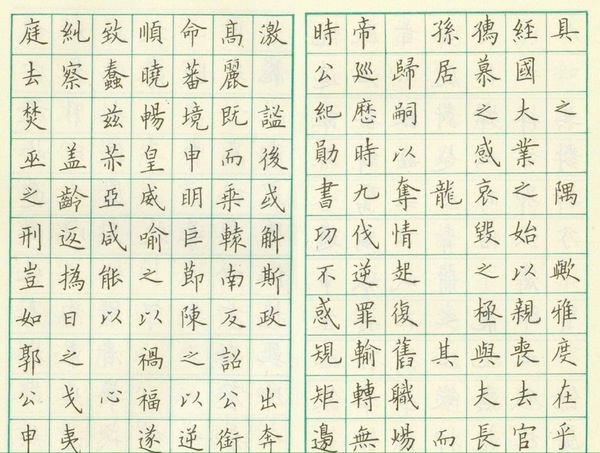 具之隅歟雅度在乎
經國大業之始以親喪去官
孺慕之感哀毀之極與夫長
孫居龍其而
歸嗣以奪情起復舊職煬
帝巡歷時九伐逆罪輸轉無
時公紀勛書功不惑規矩邊
激謐後或斛斯政出奔
高麗既而乘轅南反詔公銜
命蕃境申明巨節陳之以逆
順曉暢皇威喻之以禍福遂
致蠢茲恭亞咸能以心
糺察蓋齡返撝日之戈夷
庭去焚巫之刑豈如郭公申